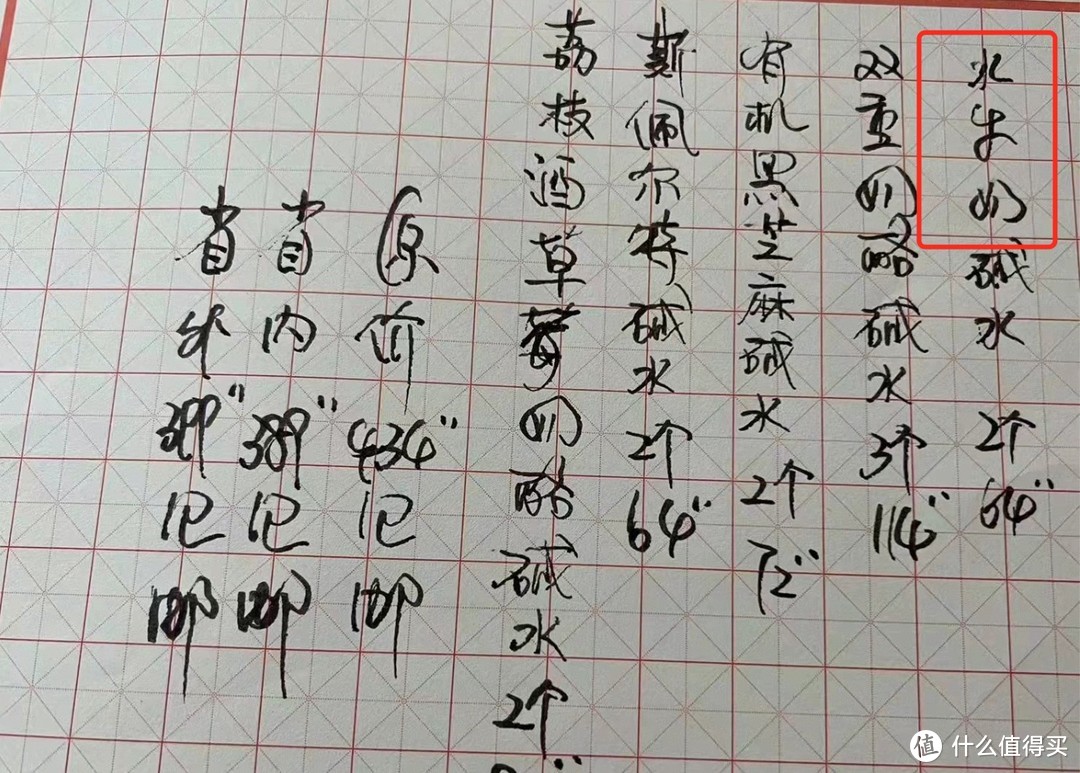 水牛奶碱水 2个 64"
双重奶酪碱水 3个 114"
有机黑芝麻碱水 2个 72"
斯佩尔特碱水 2个 64"
荔枝酒草莓奶酪碱水 2个
原价 434"包邮
省内 389"包邮
省外 399"包邮
值 什么值得买